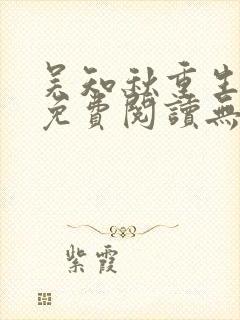 吴知秋重生
免費閱讀無
紫霞